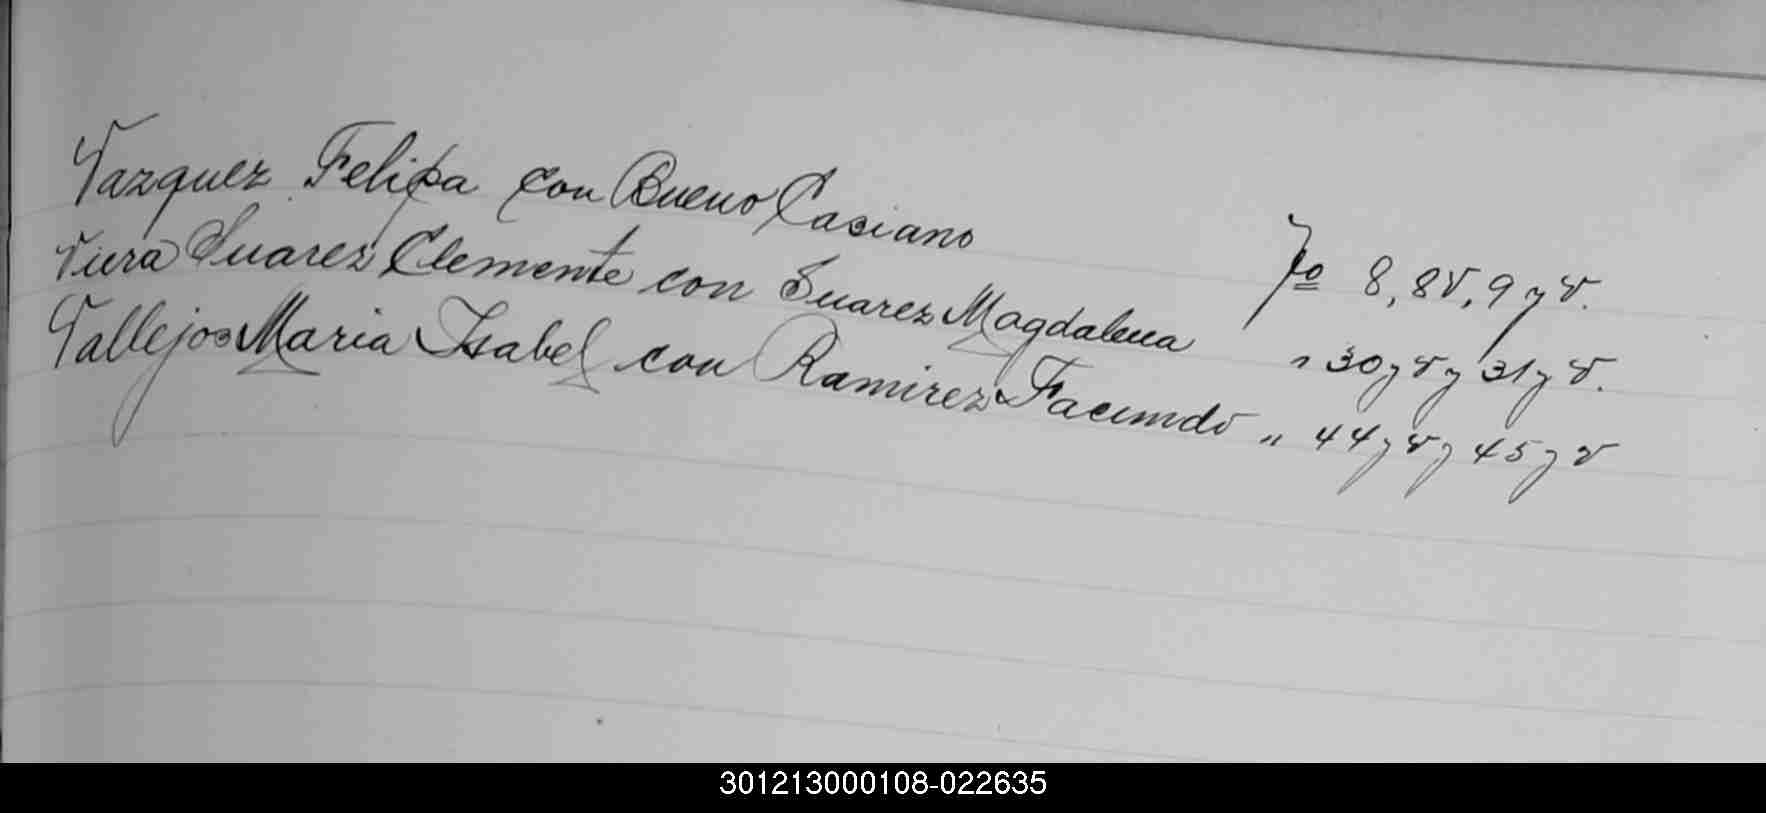 Vazquez Felipa con Bueno Casiano fo 8, 8v, 9 y v.
Viera Suarez Clemente con Suarez Magdalena " 30 y v y 31 y v.
Vallejos Maria Isabel con Ramirez Facundo " 44 y v y 45 y v
301213000108-022635